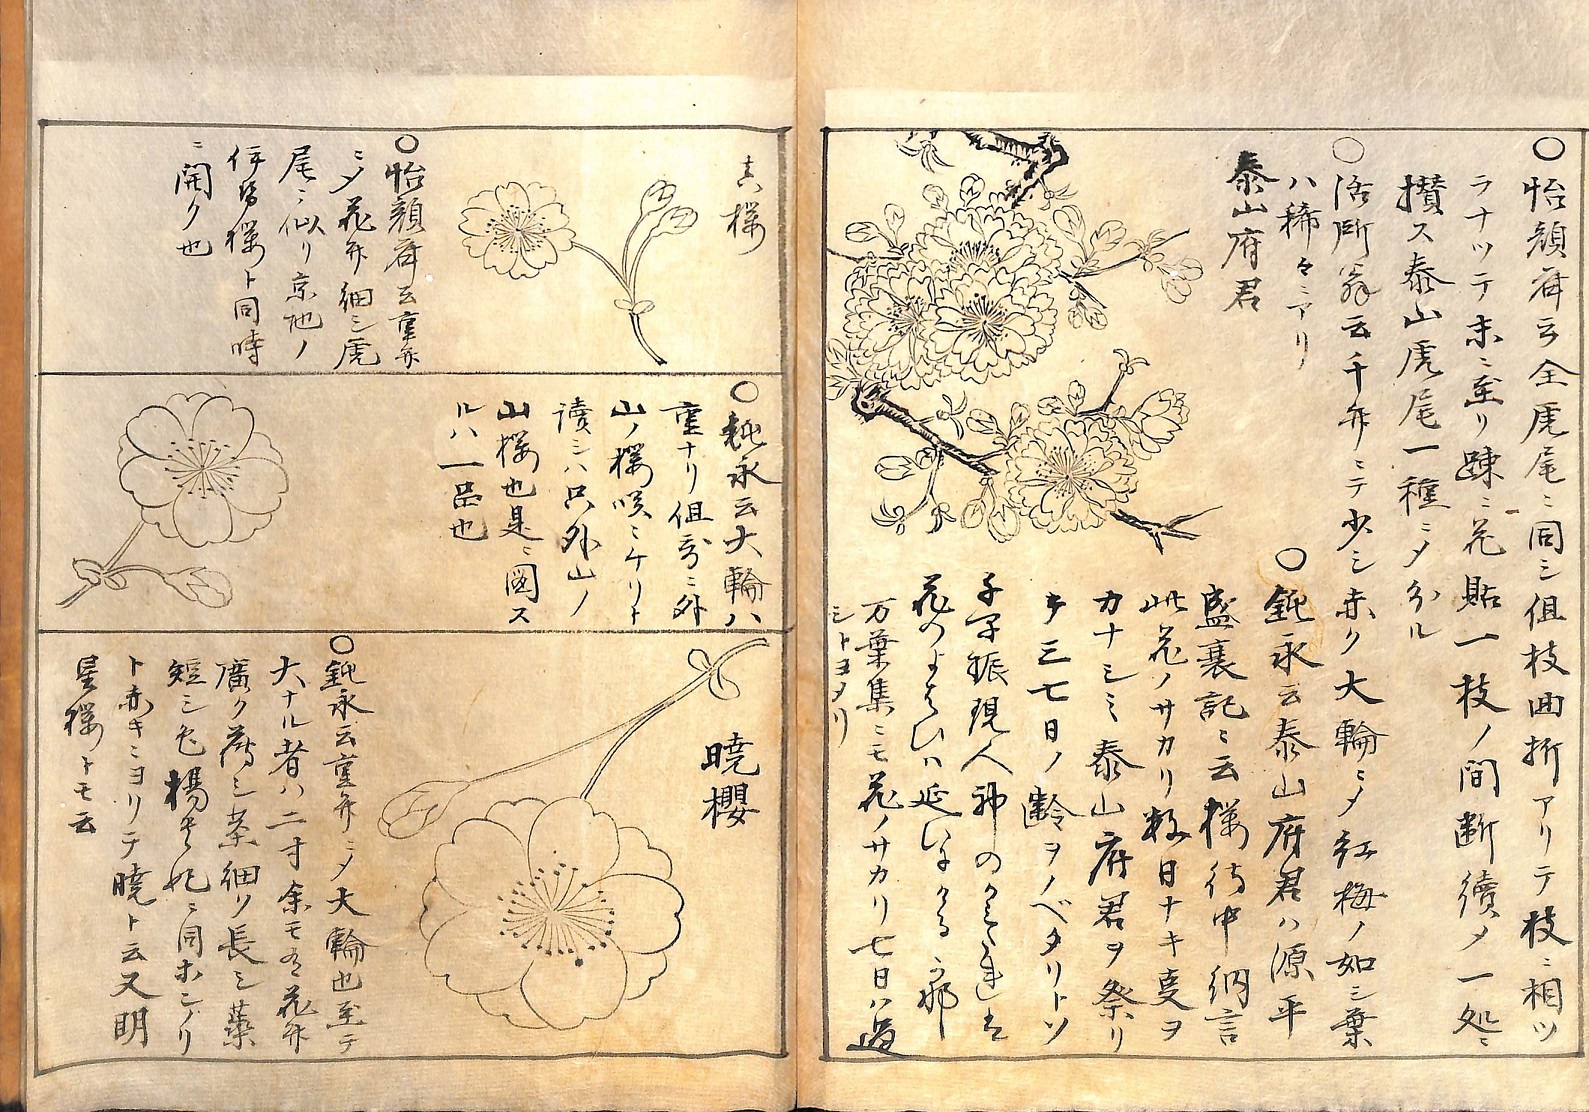 ○怡顔斎云全虎尾ニ同シ但枝曲折アリテ枝ニ相ツ
ラナツテ末ニ至リ踈ニ花貼一枝ノ間断續メ一処ニ
攅ス泰山虎尾一種ニメ分ル
○活所翁云千弁ニテ少シ赤ク大輪ニメ紅梅ノ如シ葉
ハ稀々ニアリ
泰山府君
○鈍永云泰山府君ハ源平
盛衰記ニ云桜待中納言
此花ノサカリ数日ナキ㕝ヲ
カナシミ泰山府君ヲ祭リ
テ三七日ノ齢ヲノベタリトソ
千早振現人神の
花のよはひハ延にける
万葉集ニモ花ノサカリ七日ハ過
シトヨメリ
真桜
○怡顔斎云重弁
ニメ花弁細シ虎
尾ニ似リ京地ノ
伊勢桜ト同時
ニ開ク也
○鈍永云大輪ハ
重ナリ但哥ニ外
山ノ桜咲ニケリト
讀シハ只外山ノ
山桜也是ニ図ス
ルハ一品也
暁櫻
○鈍永云重弁ニメ大輪也至テ
大ナル者ハ二寸余モ有花弁
廣ク薄シ茎細ク長シ蘂
短シ色楊貴妃ニ同ホシソリ
ト赤キニヨリテ暁ト云又明
星桜トモ云